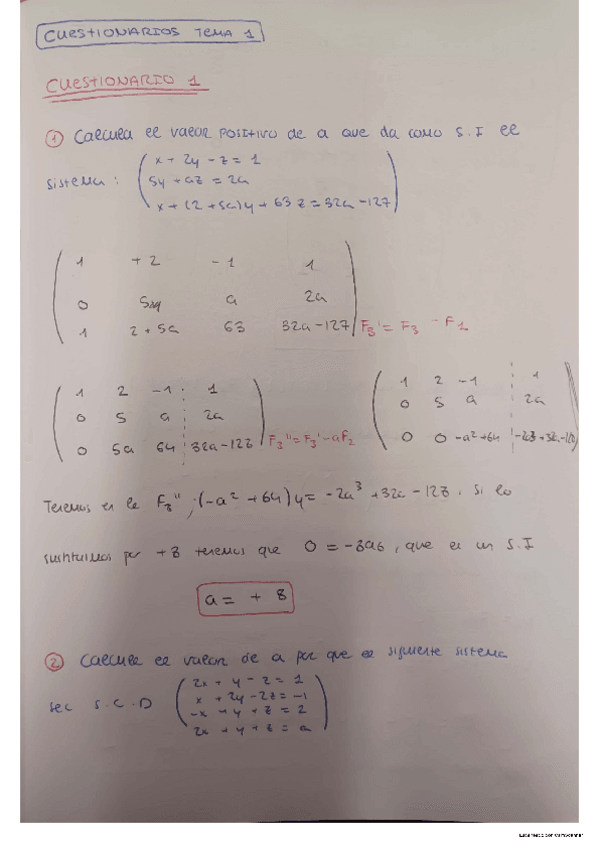 CUESTIONARIOS TEMA 1
CUESTIONARIO 1
① Calcula el valor positivo de a que da como S.I el
sistema: ( x + 2y - z = 1
5y + az = 2a
x + (2 + 5a)y + 63 z = 32a - 127 )
( 1 +2 -1 1
0 5 a 2a
1 2 + 5a 63 32a - 127 ) F3' = F3 - F1
( 1 2 -1 1
0 5 a 2a
0 5a 64 32a - 128 ) F3'' = F3' - aF2
( 1 2 -1 1
0 5 a 2a
0 0 -a² + 64 )
Tenemos en la F3'' ; (-a² + 64) y = -2a³ + 32a - 128. Si lo
sustituimos por +8 tenemos que 0 = , que es un S.I
a = + 8
② Calcula el valor de a por que el siguiente sistema
sea S.C.D ( 2x + y - z = 1
x + 2y - 2z = -1
-x + y + z = 2
2x + y + z = a )